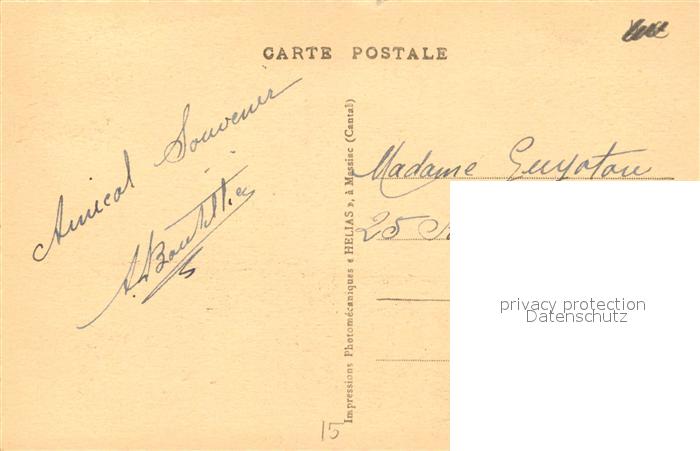 CARTE POSTALE
Amical Souvenir
A. Boutillier
Impressions Photomécaniques « HELIAS », à Massiac (Cantal)
Madame
25
privacy protection
Datenschutz
15